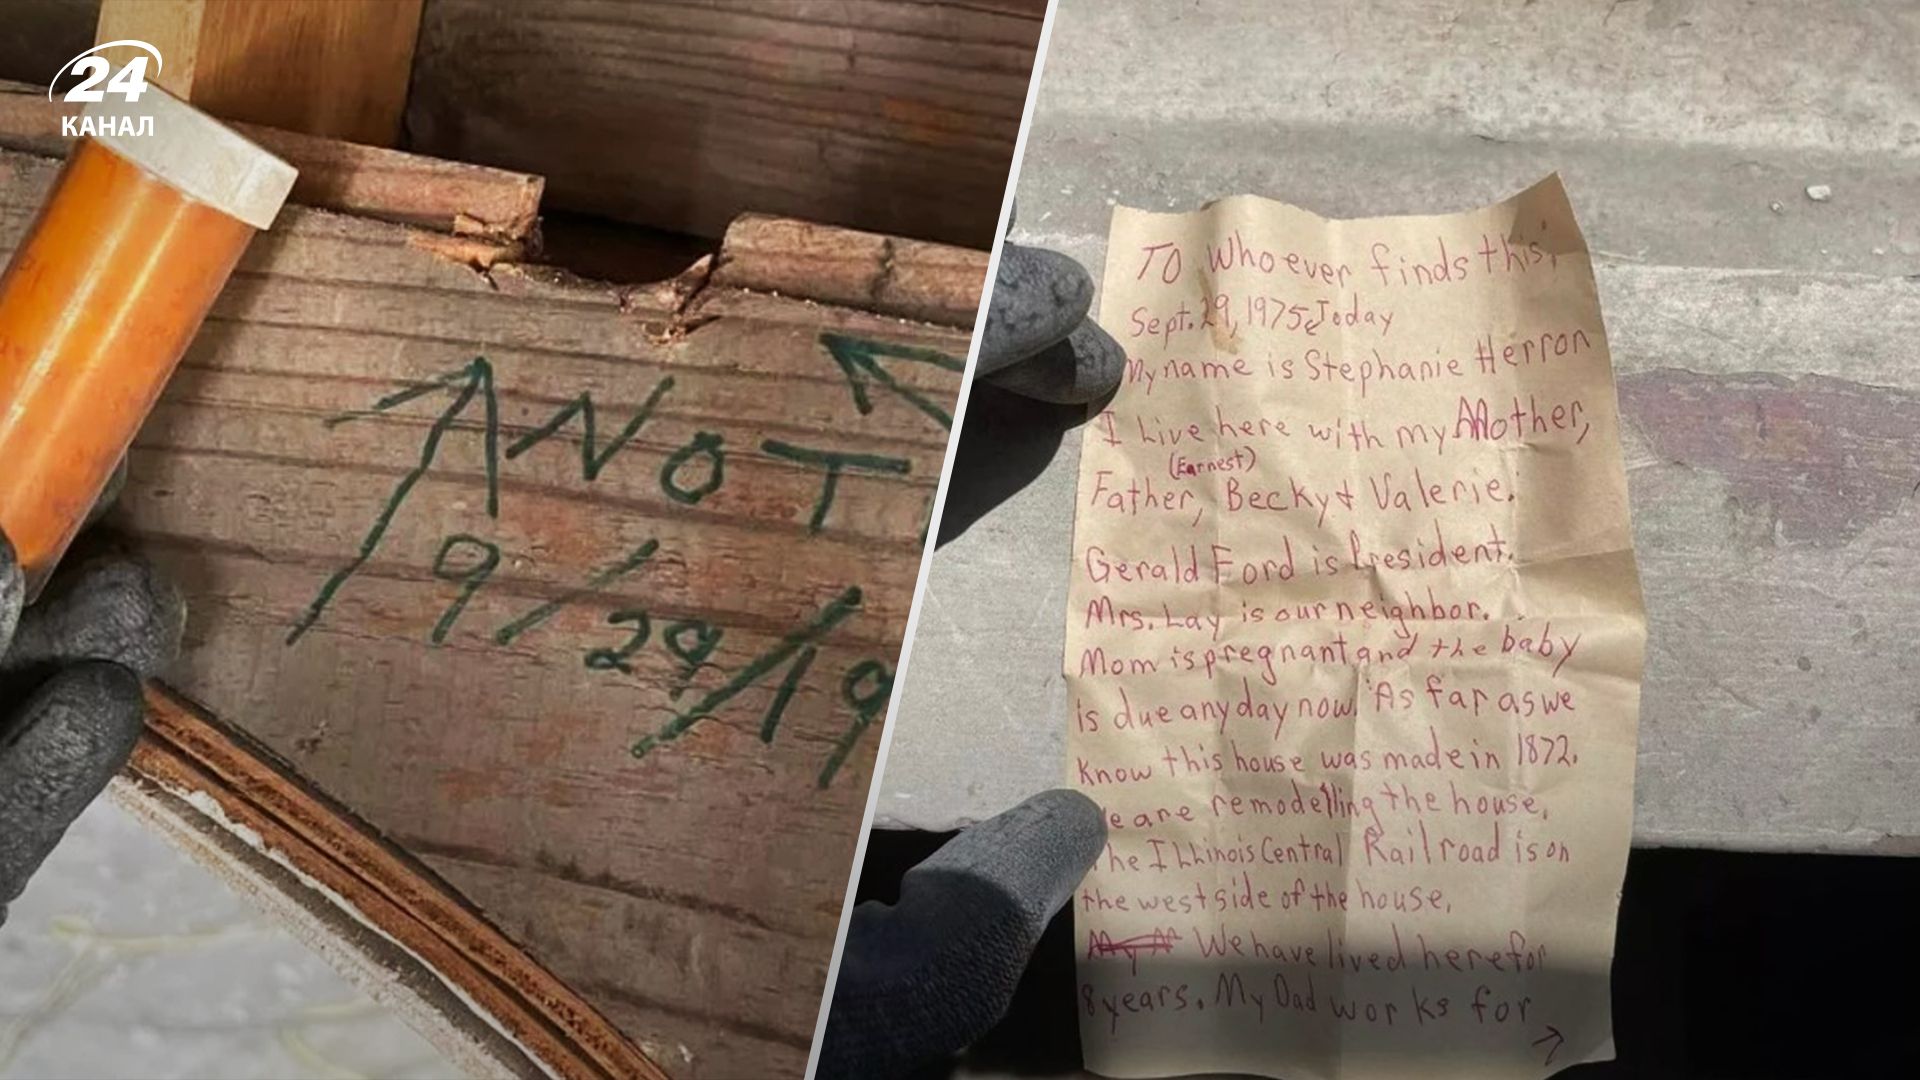 24
КАНАЛ
A NOT
9/29/19
TO Whoever finds this,
Sept. 29, 1975, Today
My name is Stephanie Herron
I Live here with my Mother,
(Earnest)
Father, Becky & Valerie.
Gerald Ford is President.
Mrs. Lay is our neighbor.
Mom is pregnant and the baby
is due any day now. As far as we
know this house was made in 1872.
We are remodelling the house.
The Illinois Central Railroad is on
the west side of the house.
We have lived here for
8 years. My Dad works for